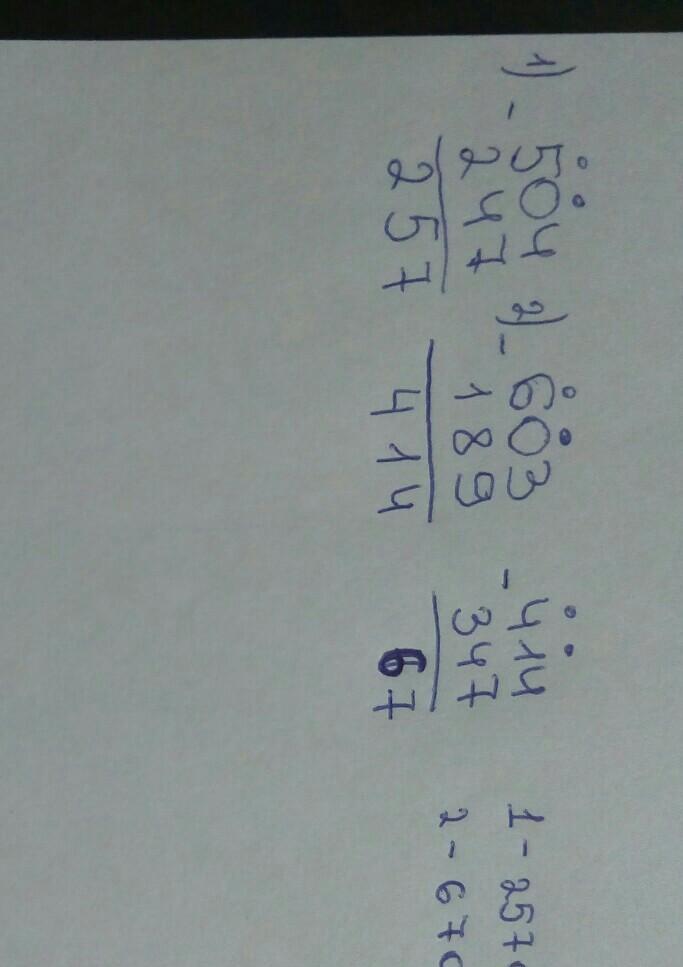 1) - 504
247
257
2) - 603
189
414
- 414
347
67
1 - 257
2 - 67